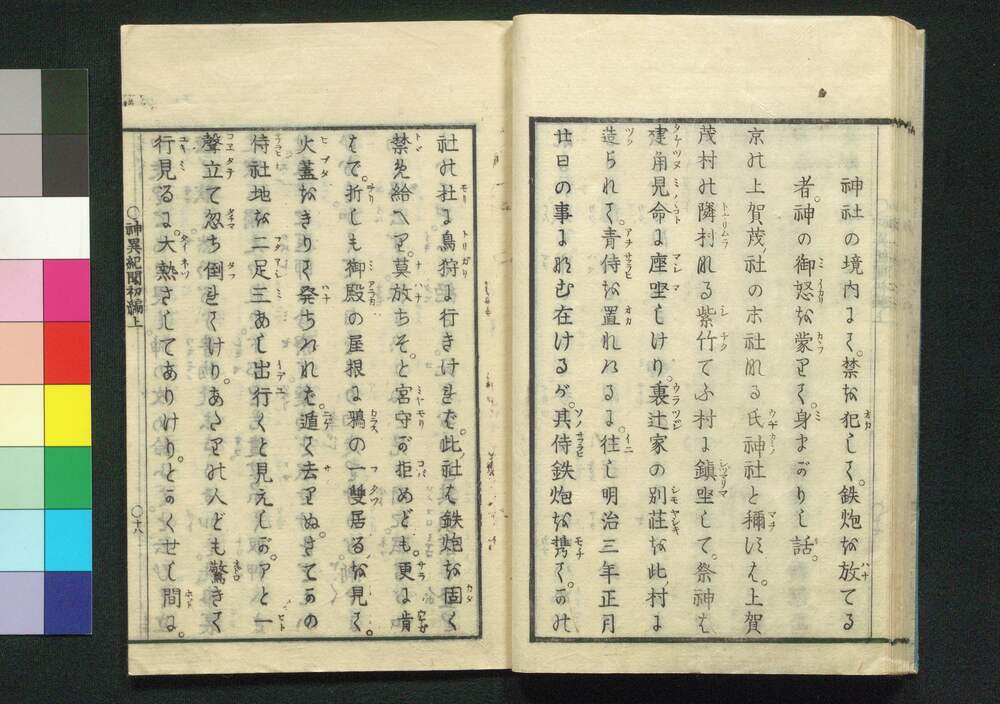 神社の境内にて。禁を犯して。鉄炮を放てる
者。神の御怒を蒙りて。身まかりし話。
京の上賀茂ノ社の末社なる氏神社と稱すは。上賀
茂村の隣村なる紫竹てふ村に鎮坐して。祭神は
建角見命に座坐しけり。裏辻家の別荘を此ノ村に
造られて。青侍を置れたるに。往し明治三年正月
廿日の事になむ在けるが。其侍鉄炮を携て。かの
社の社に鳥狩に行きければ。此ノ社は鉄炮を固く
禁め給へり。莫放ちそと宮守が拒めども。更に肯
はで。折しも御殿の屋根に鴉の一雙居るを見て。
火蓋をきりて発ちたれば。遁て去りぬ。さてかの
侍社地を二足三あし出行くと見えしが。アと一
聲立て忽ち倒れてけり。あたりの人ども驚きて
行見るに。大熱さしてありけり。とかくせし間に。
○神異紀聞初編上
○十八